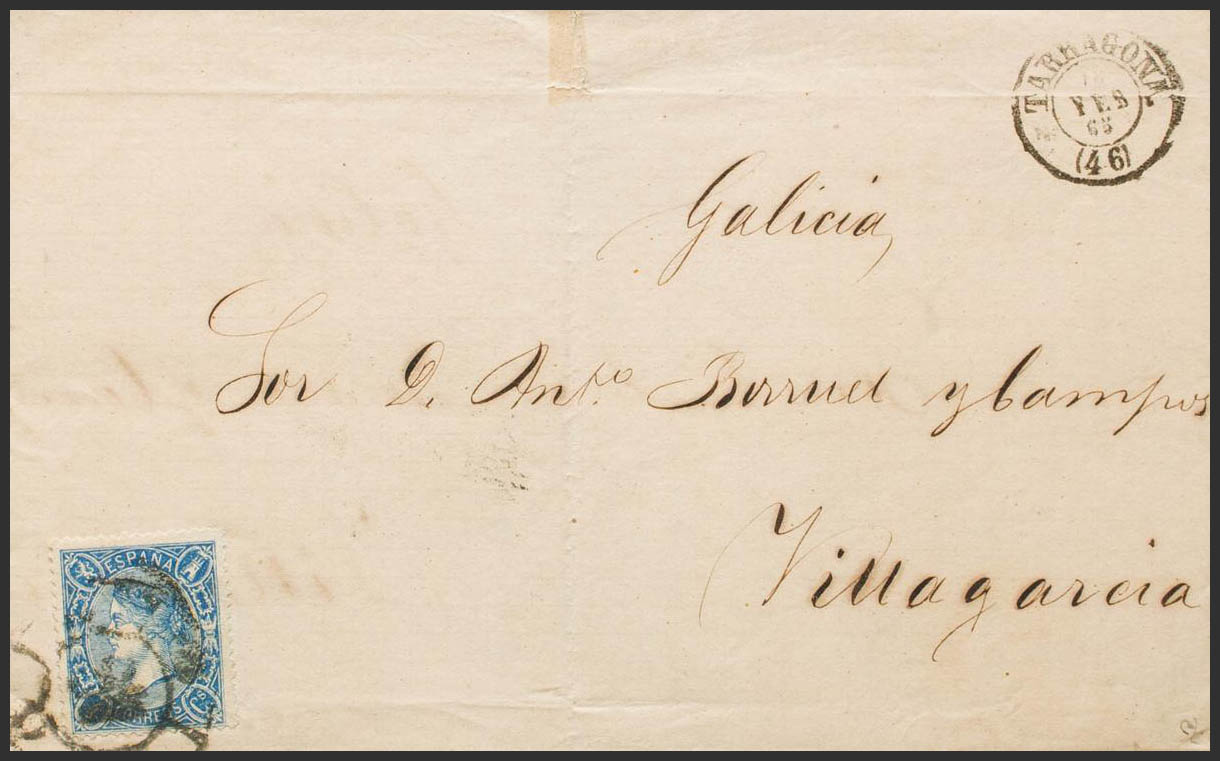 TARRAGONA
FEB
65
(46)
Galicia
Sor D. Anto. Borruel y Campos
Villagarcia
ESPAÑA
CORREOS